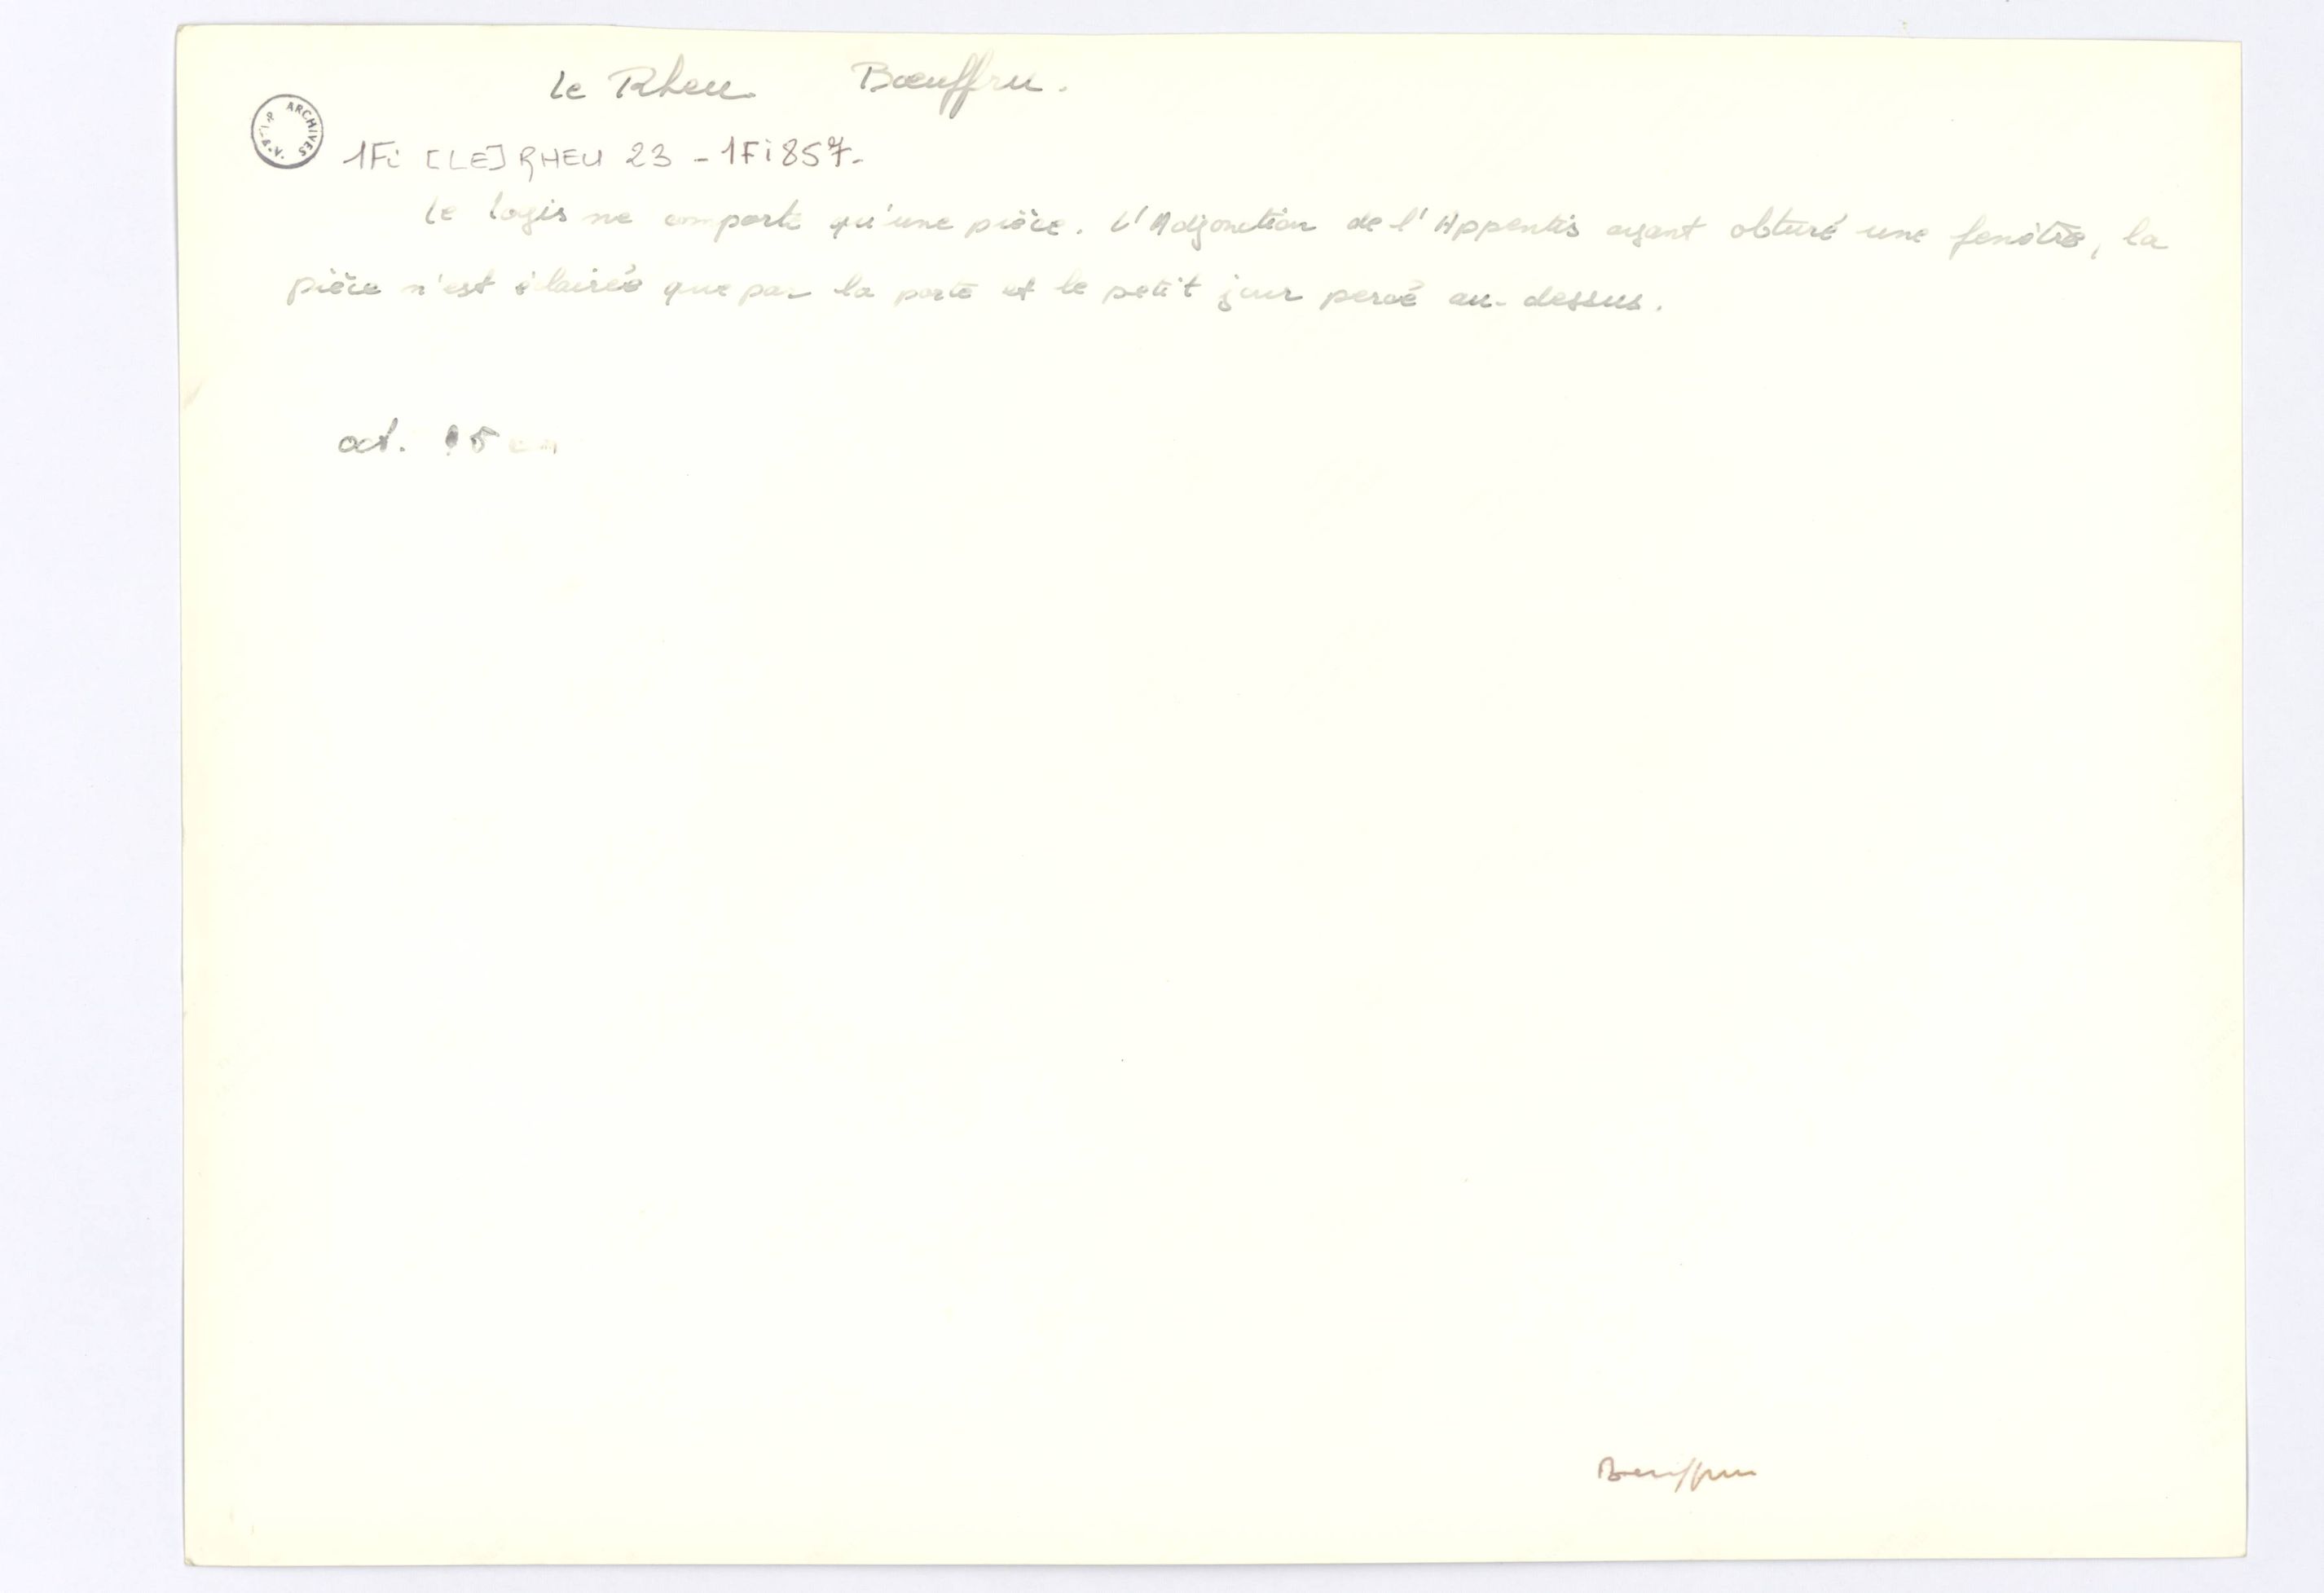 Le Rheu Bœuffru.
ARCHIVES
1Fi [LE] RHEU 23 - 1Fi857-
Le logis ne comporte qu'une pièce. L'Adjonction de l'Appentis ayant obturé une fenêtre, la
pièce n'est éclairée que par la porte et le petit jour percé au-dessus.
oct.
Bœuffru